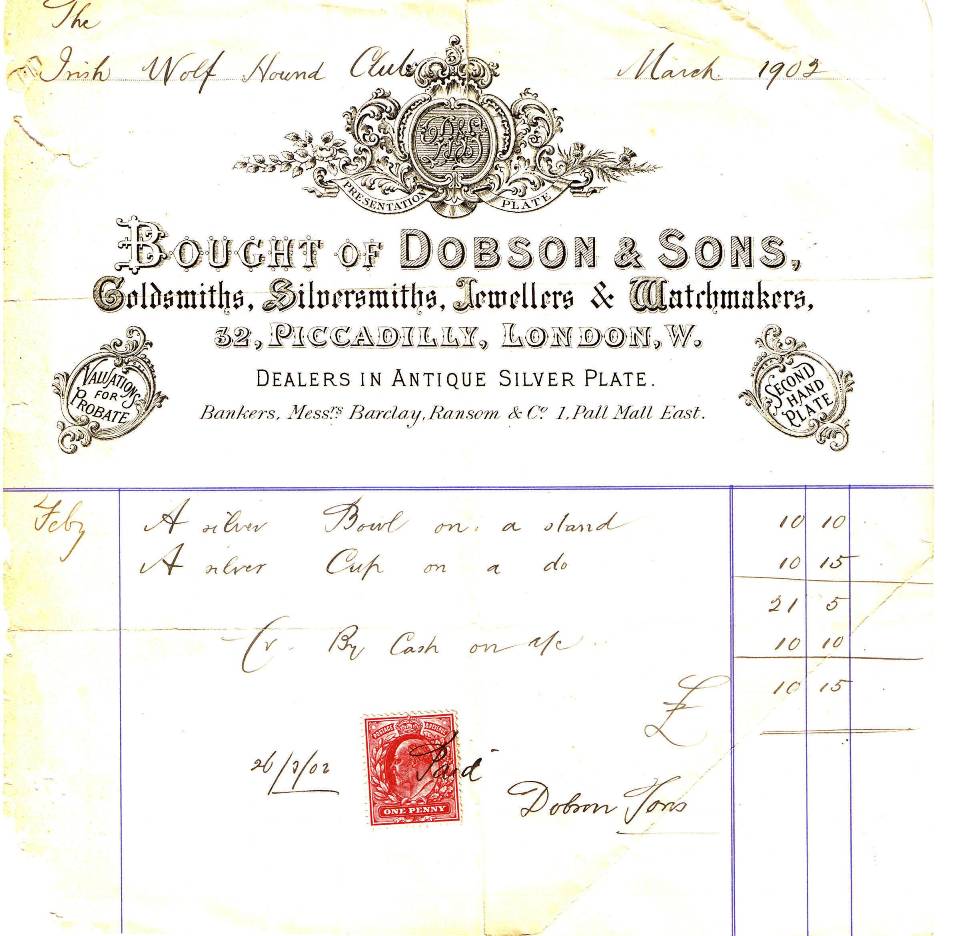 The
Irish Wolf Hound Club March 1902
PRESENTATION PLATE
BOUGHT OF DOBSON & SONS,
Goldsmiths, Silversmiths, Jewellers & Watchmakers,
32, PICCADILLY, LONDON, W.
VALUATIONS FOR PROBATE
DEALERS IN ANTIQUE SILVER PLATE.
SECOND HAND PLATE
Bankers, Messrs Barclay, Ransom & Co 1, Pall Mall East.
Feby A silver Bowl on a stand 10 10
A silver Cup on a do 10 15
21 5
Cr. By Cash on a/c 10 10
£ 10 15
POSTAGE REVENUE
26/3/02 Paid
ONE PENNY
Dobson Sons